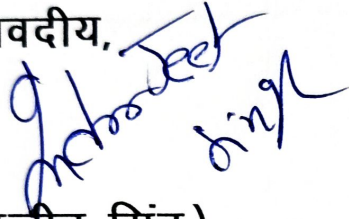 वदीय,
Inderjeet Singh
सिंह)